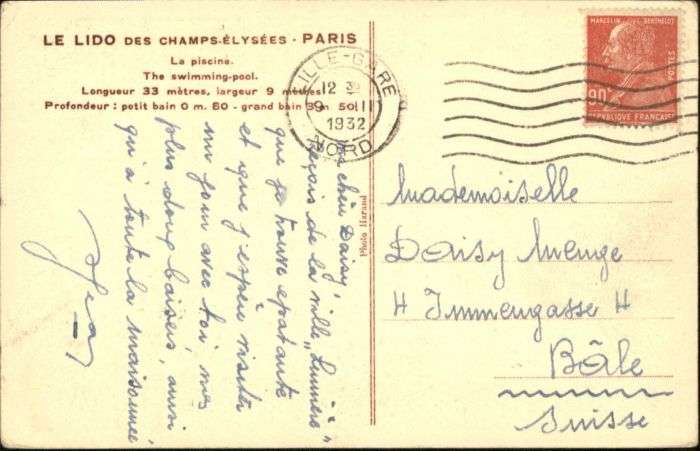 LE LIDO DES CHAMPS-ÉLYSÉES - PARIS
La piscine.
The swimming-pool.
Longueur 33 mètres, largeur 9 mètres
Profondeur : petit bain 0 m. 60 - grand bain 3 m 50
LILLE-GARE
12
9 III
1932
NORD
MARCELIN BERTHELOT
POSTES
90c
REPUBLIQUE FRANÇAISE
chère Daisy,
reçois de la ville "Lumière"
que je trouve épatante
et que j'espère visiter
un jour avec toi mes
plus doux baisers, ainsi
qu'à toute la maisonnée
Photo Harand
Mademoiselle
Daisy Menge
4 Immengasse 4
Bâle
Suisse